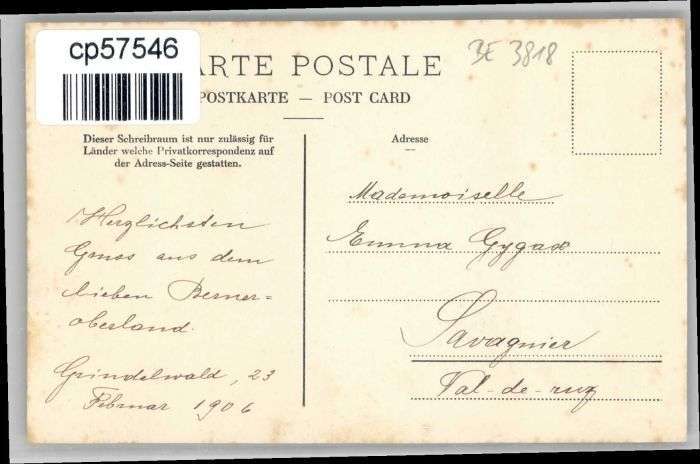 cp57546
ARTE POSTALE
BE 3818
POSTKARTE — POST CARD
Dieser Schreibraum ist nur zulässig für
Länder welche Privatkorrespondenz auf
der Adress-Seite gestatten.
Herzlichsten
Gruss aus dem
lieben Berner=
oberland.
Grindelwald, 23
Februar 1906
Adresse
Mademoiselle
Emma Gygax
Savagnier
Val-de-ruz